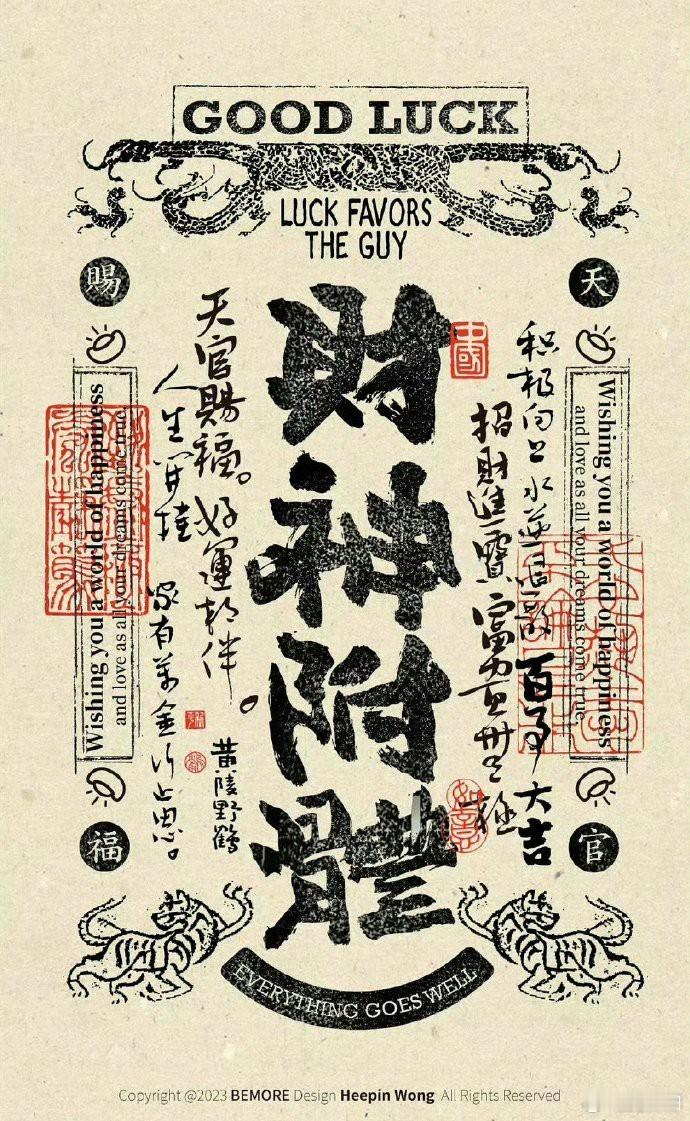 GOOD LUCK
LUCK FAVORS
THE GUY
天
官
賜
福
財神附體
中國
积极向上 水逆回散 百事大吉
招財進寶 富
天官賜福。好運相伴。
人生 家有万金行止思。
黄陵野鶴
如意
Wishing you a world of happiness
and love as all your dreams come true.
Wishing you a world of happiness
and love as all your dreams come true.
EVERYTHING GOES WELL
Copyright @2023 BEMORE Design Heepin Wong All Rights Reserved